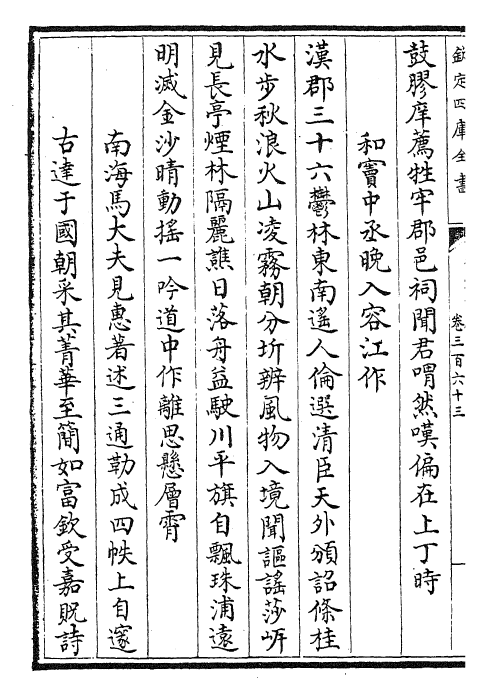 欽定四庫全書
卷三百六十三
鼓膠庠薦牲牢郡邑祠聞君喟然嘆偏在上丁時
和竇中丞晚入容江作
漢郡三十六鬱林東南遙人倫選清臣天外頒詔條桂
水步秋浪火山凌霧朝分圻辨風物入境聞謳謠莎岍
見長亭煙林隔麗譙日落舟益駛川平旗自飄珠浦遠
明滅金沙晴動搖一吟道中作離思懸層霄
南海馬大夫見惠著述三通勒成四帙上自邃
古達于國朝采其菁華至簡如富欽受嘉貺詩